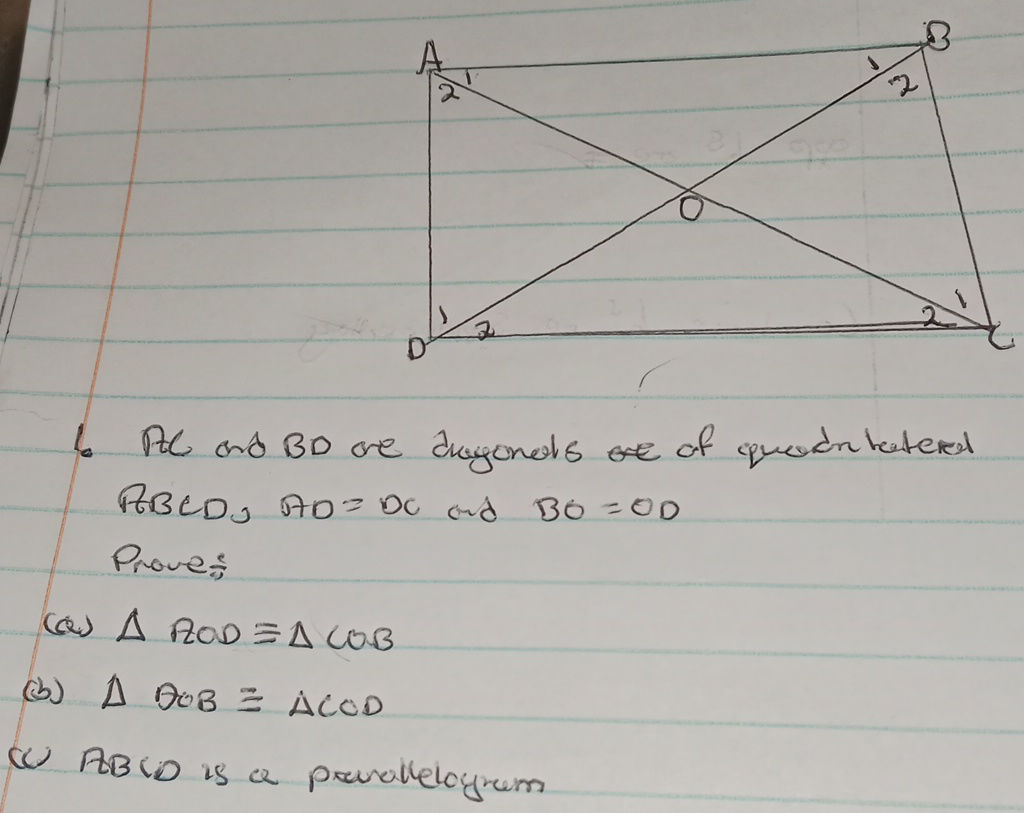 A
B
1
2
1
2
O
1
2
2
1
D
C
6 AC and BD are diagonals are of quadrilateral
ABCD, AO = OC and BO = OD
Prove:
(a) Δ AOD ≡ Δ COB
(b) Δ AOB ≡ Δ COD
(c) ABCD is a parallelogram